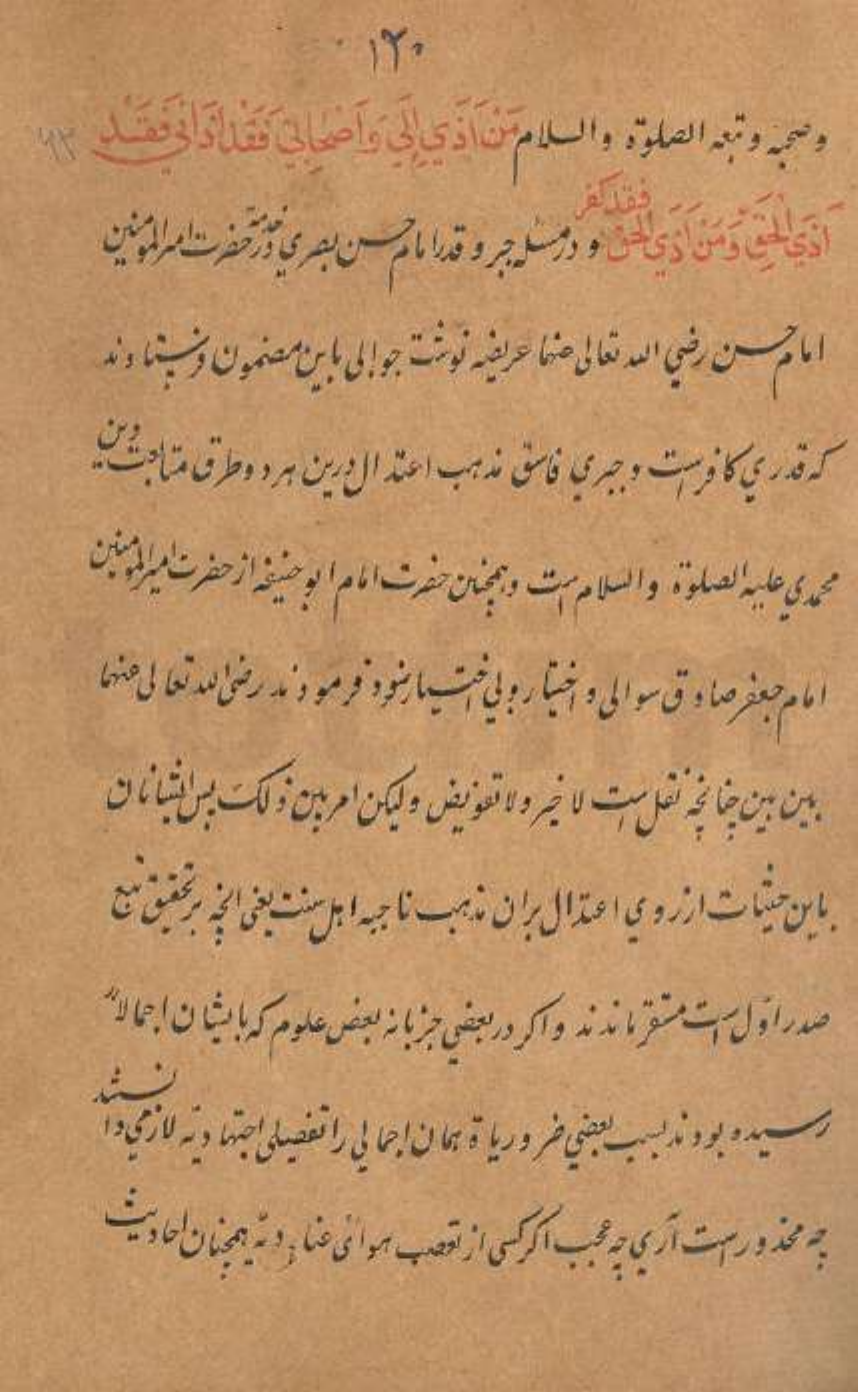 ۱۲۰
وصحبه وتبعه الصلوة والسلام مَنْ اَذَي اِلَي وَاَصْحَابِي فَقَدْ اَذَانِي فَقَدْ
۹۳
اَذَي الْحَقِ وَمَنْ اَذَي الْحَقَ فقد كفر و در مسله جبر و قدر امام حسن بصري در خدمة حضرت امير المومنين
امام حسن رضي الله تعالى عنهما عريضه نوشت جوابى باين مضمون فرستادند
كه قدري كافرست و جبري فاسق مذهب اعتدال درين هر دو طرق متابعت دين
محمدي عليه الصلوة والسلام است و همچنين حضرت امام ابو حنيفه از حضرت امير المومنين
امام جعفر صادق سوالى و اختيار وبي اختيار نمود فرمودند رضى الله تعالى عنهما
بين بين چنانچه نقل است لا خير ولا تفويض وليكن امر بين ذلك پس ايشانان
باين حيثيات از روي اعتدال بران مذهب ناجيه اهل سنت يعنى انچه بر تحقيق تبع
صدر اول است مستقر ماندند و اكر در بعضي جزيانه بعض علوم كه بايشان اجمالاً
رسيده بودند بسبب بعضي ضرورياة همان اجمالي را تفصيلى اجتهاديه لازمي دانستند
چه محذورست آري چه عجب اكر كسى از تعصب هوائى عناديه همچنان احاديث